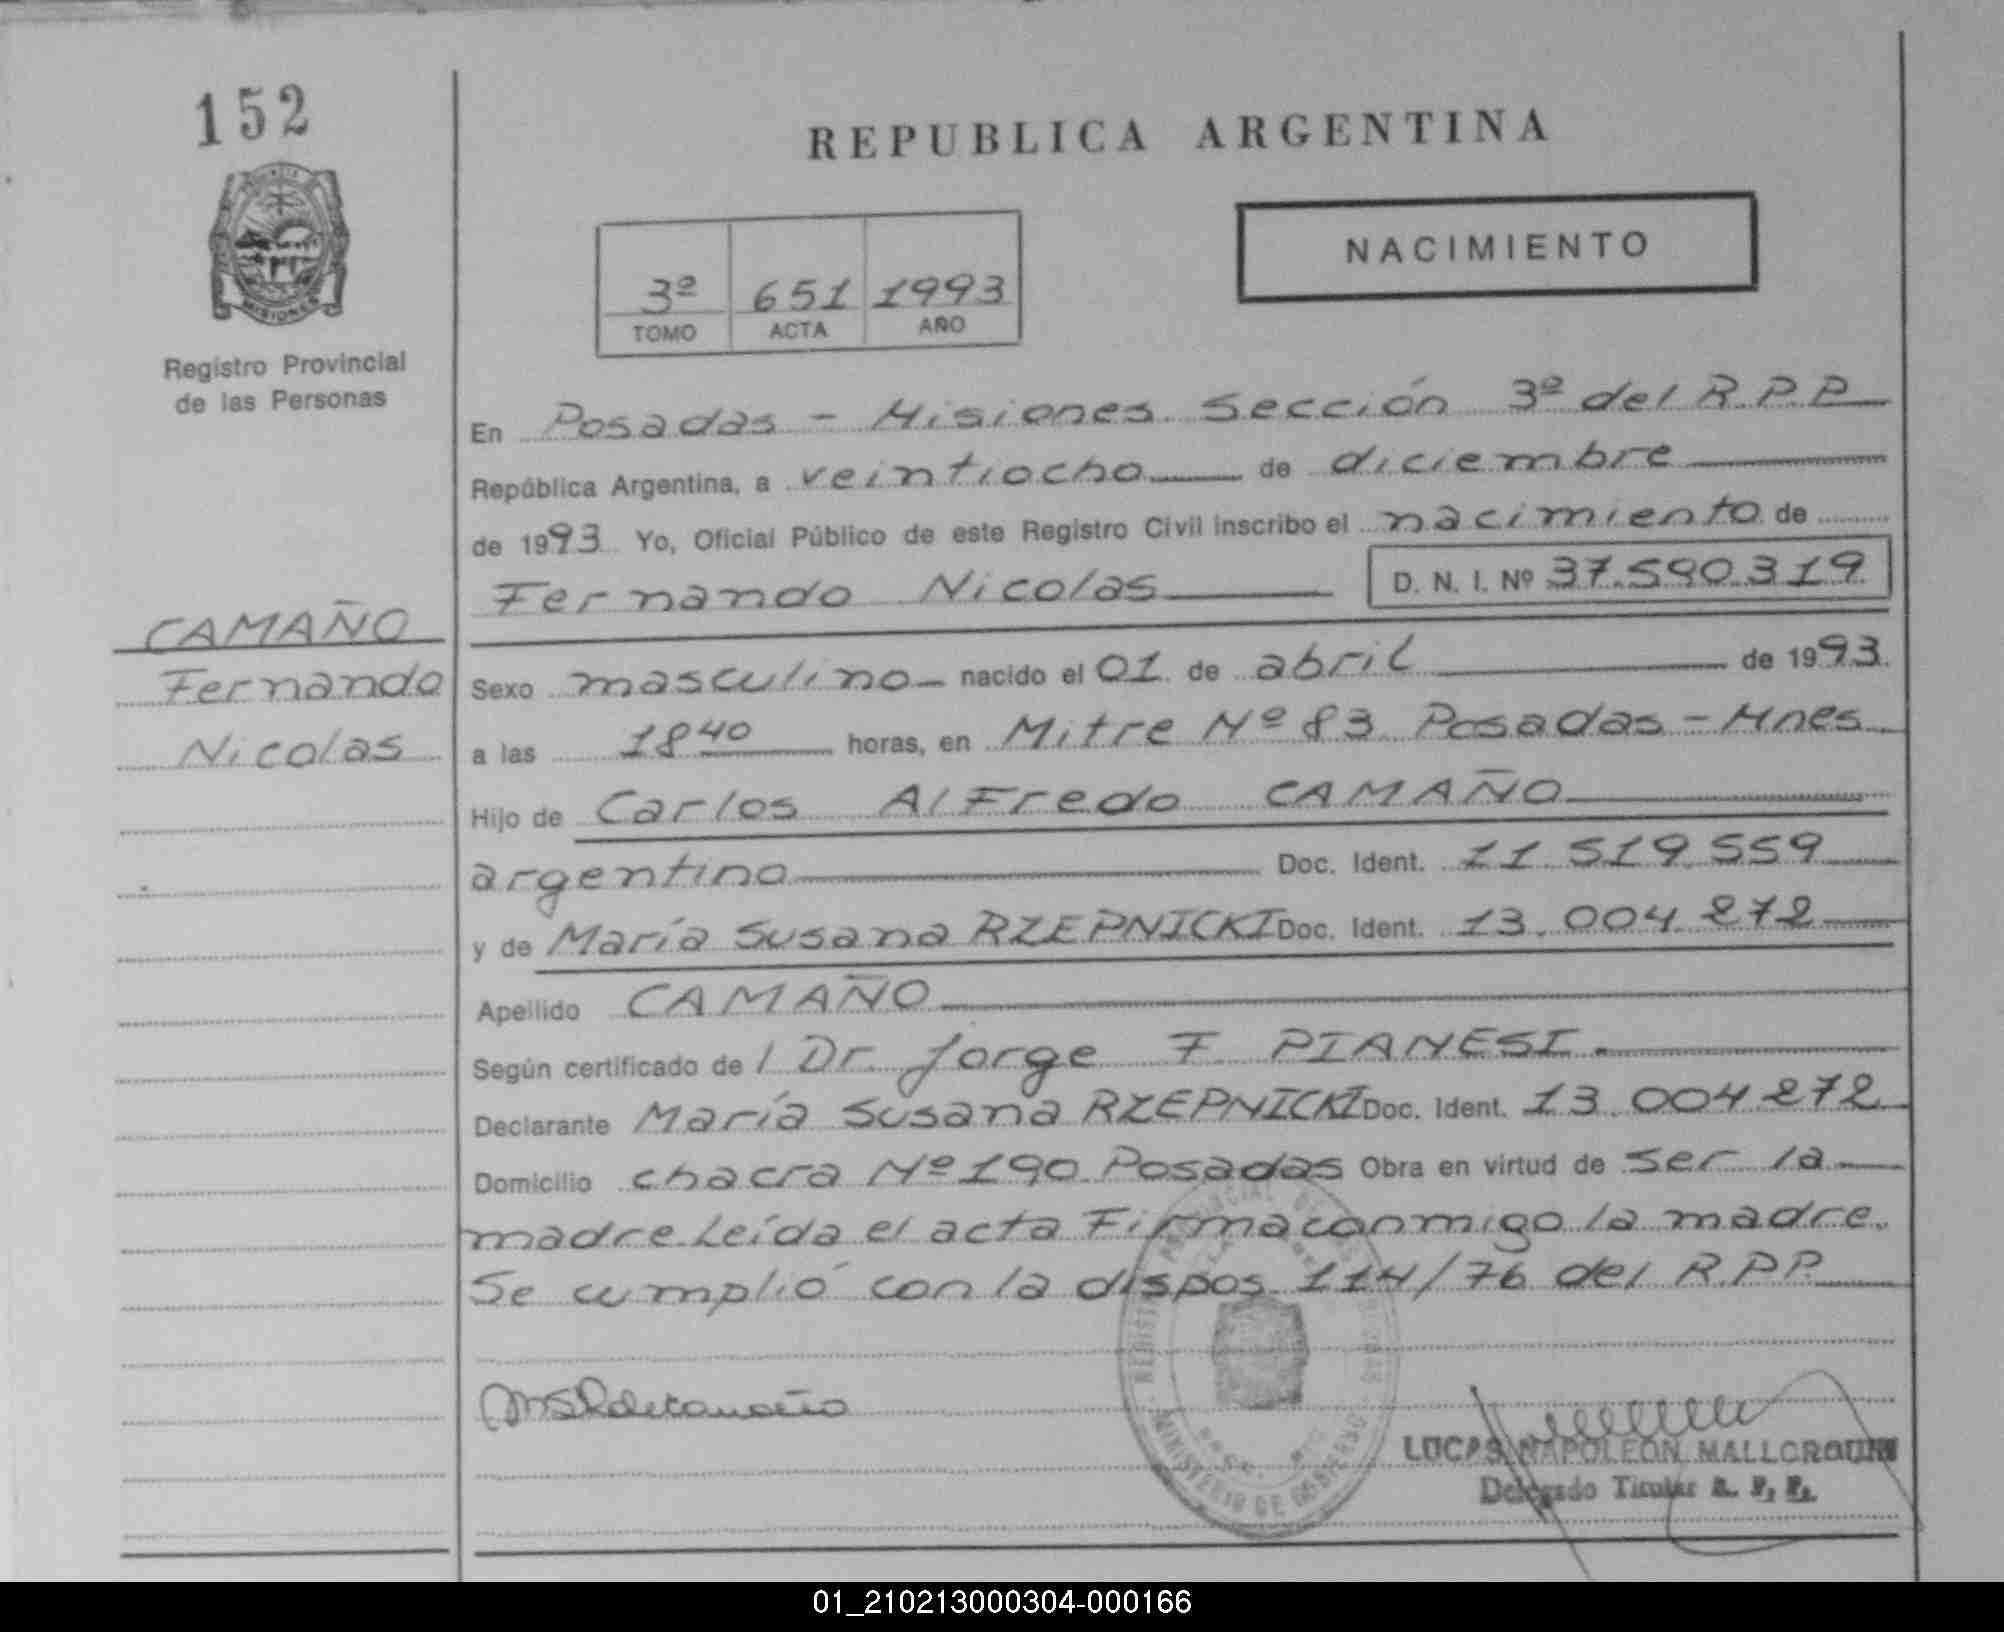 152
REPUBLICA ARGENTINA
NACIMIENTO
3º 651 1993
TOMO ACTA AÑO
MISIONES
Registro Provincial
de las Personas
En Posadas - Misiones Sección 3º del R.P.P.
República Argentina, a veintiocho de diciembre
de 1993 Yo, Oficial Público de este Registro Civil inscribo el nacimiento de
Fernando Nicolas D. N. I. Nº 37.590.319
CAMAÑO
Fernando
Nicolas
Sexo masculino nacido el 01 de abril de 1993
a las 18 40 horas, en Mitre Nº 83 Posadas - Mnes
Hijo de Carlos Alfredo CAMAÑO
argentino Doc. Ident. 11.519.559
y de María Susana RZEPNICKI Doc. Ident. 13.004.272
Apellido CAMAÑO
Según certificado de l Dr. Jorge F PIANESI.
Declarante María Susana RZEPNICKI Doc. Ident. 13.004.272
Domicilio chacra Nº 190 Posadas Obra en virtud de ser la
madre Leída el acta Firma conmigo la madre.
Se cumplió con la dispos 114/76 del R.P.P.
MINISTERIO DE GOBIERNO
LUCAS NAPOLEON
Delegado Titular R. P. P.
01_210213000304-000166